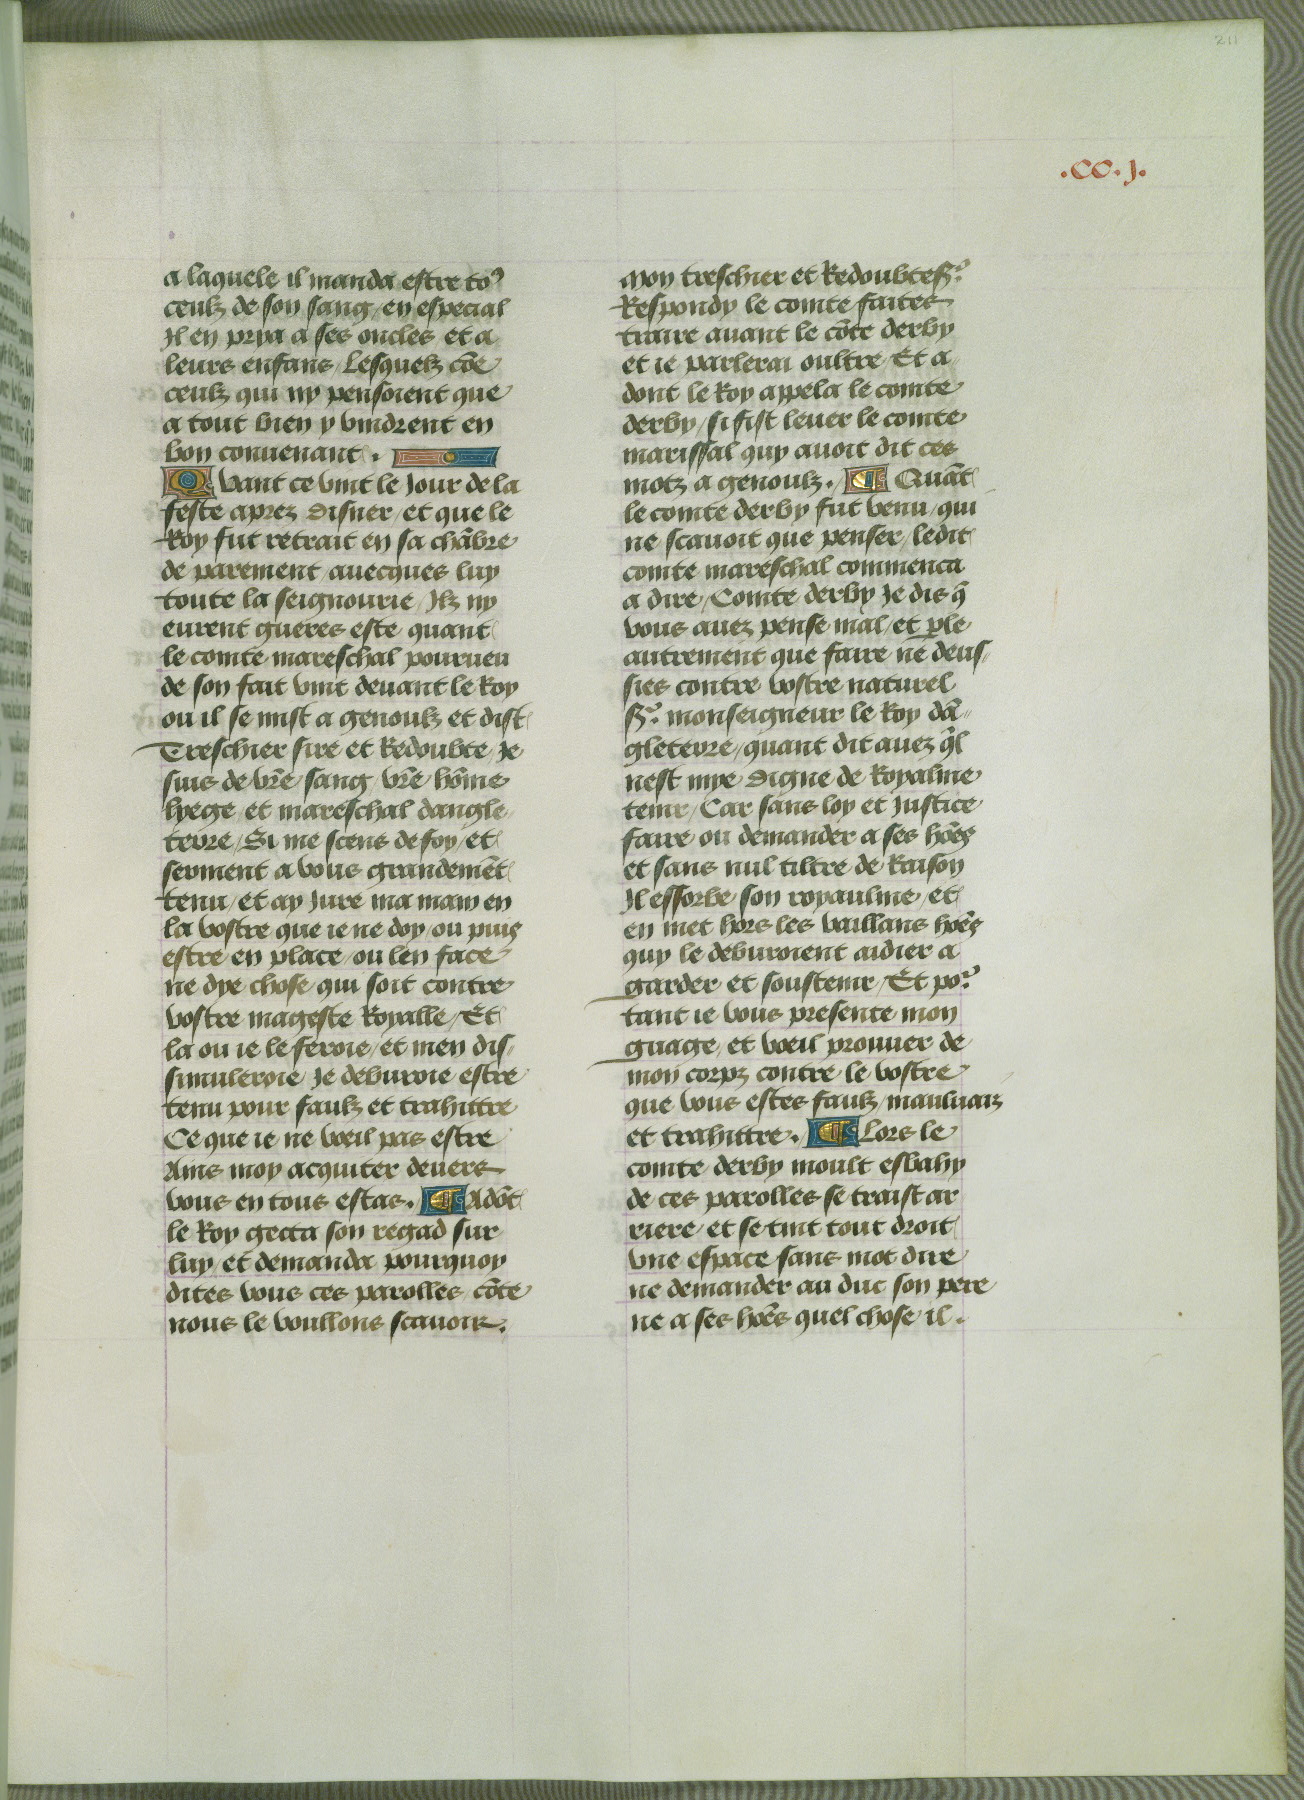 211
.CC.j.
a laquele il manda estre to9
ceulz de son sang / en especial
Il en prya a ses oncles et a
leurs enfans / Lesquelz cõe
ceulz qui ny pensoient que
a tout bien y vindrent en
bon conuenant .
Quant ce vint le Jour de la
feste aprez disner / et que le
Roy fut retrait en sa chãbre
de parement auecques luy
toute la seignourie / Jlz ny
eurent gueres este quant
le comte mareschal pourueu
de son fait vint deuant le Roy
ou il se mist a genoulz et dist
Treschier sire et Redoubte / Je
suis de vr̃e sang vr̃e hõme
lyege et mareschal dangle
terre / Si me scens de foy / et
serment a vous grandemẽt
tenu / et ay Jure ma main en
la vostre que ie ne doy / ou puis
estre en place / ou len face
ne dye chose qui soit contre
vostre mageste Royalle / Et
la ou ie le feroie / et men dis/
simuleroie Je deburoie estre
tenu pour faulz et trahittre
Ce que ie ne voeil pas estre
Ains moy acquiter deuers
vous en tous estas. ¶ Adõt
le Roy gecta son regad sur
luy / et demanda pourquoy
dites vous ces parolles / cõte
nous le voullons scauoir.
Mon treschier et Redoubte sr̃
Respondy le comte faites
traire auant le cõte derby
et ie parlerai oultre / Et a
dont le Roy appela le comte
derby / si fist leuer le comte
marissal quy auoit dit ces
motz a genoulz. ¶ Quãt
le comte derby fut venu / qui
ne scauoit que penser / ledit
comte mareschal commenca
a dire / Comte derby Je dis q̃
vous auez pense mal / et p̱le
autrement que faire ne deus/
sies contre vostre naturel
sr̃ monseigneur le Roy dã
gleterre / quant dit auez q̃l
nest mye digne de Royalme
tenir / Car sans loy et Justice
faire ou demander a ses hões
et sans nul tiltre de Raison
Il essorbe son royaulme / et
en met hors les vaillans hões
quy le deburoient aidier a
garder et soustenir / Et por̃
tant ie vous presente mon
guage / et voeil prouuer de
mon corpz contre le vostre
que vous estes faulz / mauluaiz
et trahittre. ¶ Lors le
comte derby moult esbahy
de ces parolles se traist ar
riere / et se tint tout droit
vne espace sans mot dire
ne demander au duc son pere
ne a ses hões quel chose il .